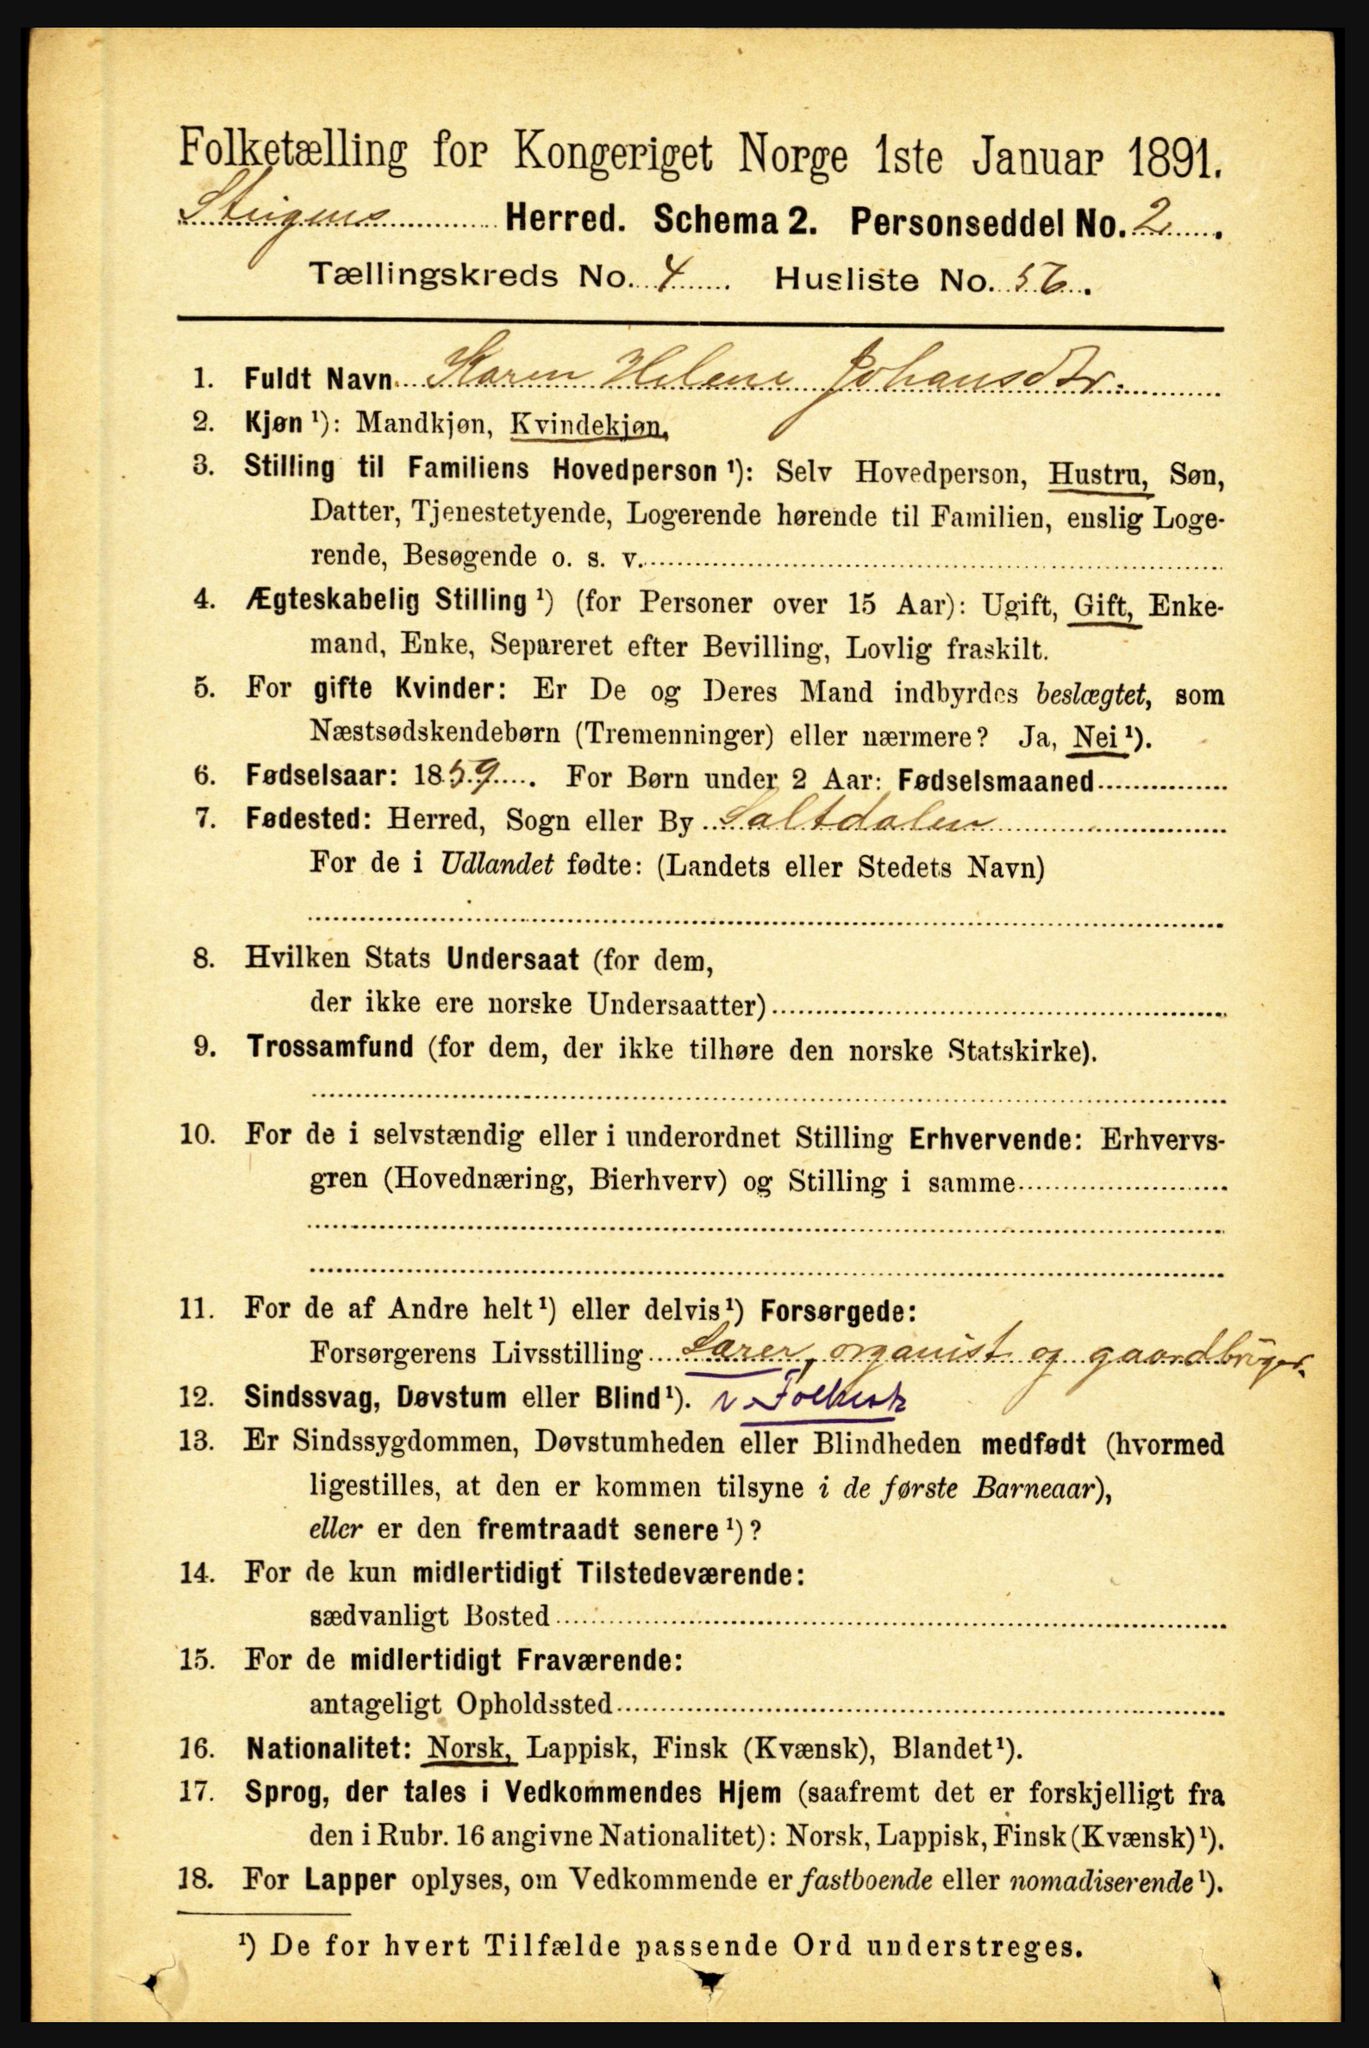 Folketælling for Kongeriget Norge 1ste Januar 1891.
Steigens Herred. Schema 2. Personseddel No. 2.
Tællingskreds No. 4 Husliste No. 56.
1. Fuldt Navn Karen Helene Johansdtr.
2. Kjøn ¹): Mandkjøn, Kvindekjøn,
3. Stilling til Familiens Hovedperson ¹): Selv Hovedperson, Hustru, Søn,
Datter, Tjenestetyende, Logerende hørende til Familien, enslig Loge-
rende, Besøgende o. s. v.
4. Ægteskabelig Stilling ¹) (for Personer over 15 Aar): Ugift, Gift, Enke-
mand, Enke, Separeret efter Bevilling, Lovlig fraskilt.
5. For gifte Kvinder: Er De og Deres Mand indbyrdes beslægtet, som
Næstsødskendebørn (Tremenninger) eller nærmere? Ja, Nei ¹).
6. Fødselsaar: 1859. For Børn under 2 Aar: Fødselsmaaned
7. Fødested: Herred, Sogn eller By Saltdalen
For de i Udlandet fødte: (Landets eller Stedets Navn)
8. Hvilken Stats Undersaat (for dem,
der ikke ere norske Undersaatter)
9. Trossamfund (for dem, der ikke tilhøre den norske Statskirke).
10. For de i selvstændig eller i underordnet Stilling Erhvervende: Erhvervs-
gren (Hovednæring, Bierhverv) og Stilling i samme
11. For de af Andre helt ¹) eller delvis ¹) Forsørgede:
Forsørgerens Livsstilling Lærer, organist og gaardbruger.
12. Sindssvag, Døvstum eller Blind ¹).
13. Er Sindssygdommen, Døvstumheden eller Blindheden medfødt (hvormed
ligestilles, at den er kommen tilsyne i de første Barneaar),
eller er den fremtraadt senere ¹)?
14. For de kun midlertidigt Tilstedeværende:
sædvanligt Bosted
15. For de midlertidigt Fraværende:
antageligt Opholdssted
16. Nationalitet: Norsk, Lappisk, Finsk (Kvænsk), Blandet ¹).
17. Sprog, der tales i Vedkommendes Hjem (saafremt det er forskjelligt fra
den i Rubr. 16 angivne Nationalitet): Norsk, Lappisk, Finsk (Kvænsk) ¹).
18. For Lapper oplyses, om Vedkommende er fastboende eller nomadiserende ¹).
¹) De for hvert Tilfælde passende Ord understreges.